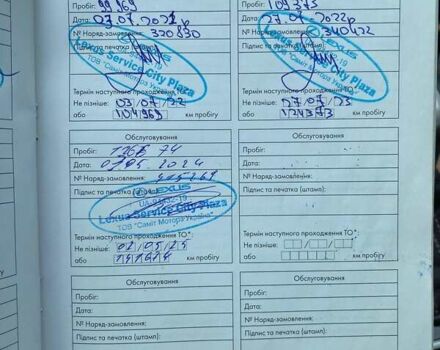 Пробіг: 99969
Дата: 03.07.2021р
№ Наряд-замовлення: 320830
Підпис та печатка (штамп):
LEXUS
Lexus Service City Plaza
ТОВ "Саміт Моторз Україна"
Термін наступного проходження ТО*:
Не пізніше: 03/07/22
або 104969 км пробігу
Пробіг: 109373
Дата: 27.07.2022р
№ Наряд-замовлення: 340422
Підпис та печатка (штамп):
LEXUS
Lexus Service City Plaza
ТОВ "Саміт Моторз Україна"
Термін наступного проходження ТО*:
Не пізніше: 27/07/23
або 124373 км пробігу
Обслуговування
Пробіг: 1266 74
Дата: 2024
№ Наряд-замовлення:
Підпис та печатка (штамп):
LEXUS
Lexus Service City Plaza
ТОВ "Саміт Моторз Україна"
Термін наступного проходження ТО*:
Не пізніше: 02/05/25
або км пробігу
Обслуговування
Пробіг:
Дата:
№ Наряд-замовлення:
Підпис та печатка (штамп):
Термін наступного проходження ТО*:
Не пізніше:
або км пробігу
Обслуговування
Пробіг:
Дата:
№ Наряд-замовлення:
Підпис та печатка (штамп):
Обслуговування
Пробіг:
Дата:
№ Наряд-замовлення:
Підпис та печатка (штамп):